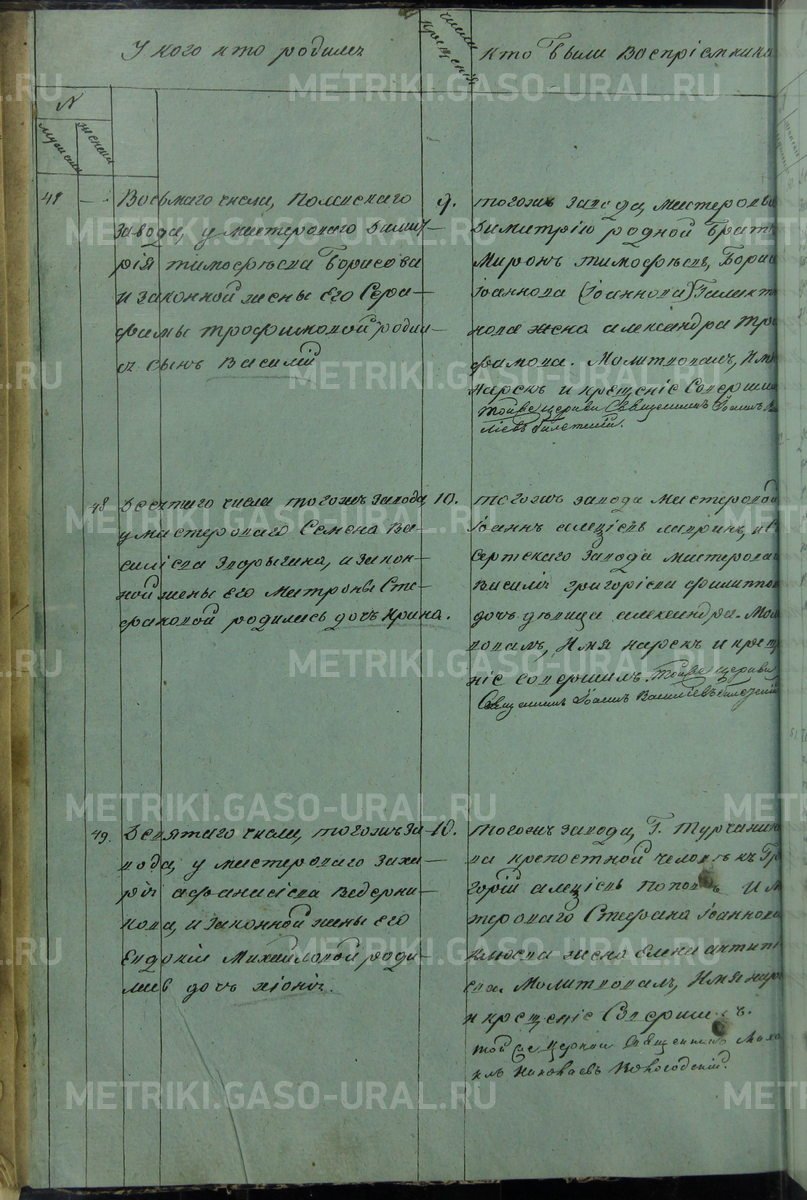 У кого кто родился
числа крещенія
кто были Воспріемники
N
мужеска
женска
49 —
Восьмаго числа, Полевскаго
завода, у мастероваго Димит-
рія Тимофѣева Борисова
и законной жены его Сера-
фимы Трофимовой роди-
ся сынъ Василій
9.
тогожъ завода, мастероваго
Димитрію родной братъ
Миронъ Тимофѣевъ, Борис
Іоаннова (Іоаннова) Галакт
нова жена Александра Тро
фимова. Молитвовалъ, Имя
нарекъ и крещеніе Соверши
тойже церкви Священникъ Іоаннъ Ва
48
Десятаго числа тогожъ завода
у мастероваго Семена Ва-
сильева и закон-
ной жены его Матроны Сте-
фановой родилась дочь Ирина.
10.
тогожъ завода мастеровой
Іоаннъ Алексіевъ и Сы
сертскаго завода мастероваго
Василія Григоріева Филиппов
дочь дѣвица Александра. Мол
вовалъ, Имя нарекъ и крещ
ніе совершилъ тойже церкви
Священникъ Іоаннъ Васильевъ
49.
Девятаго числа, тогожъ за-
вода, у мастероваго Заха-
рія Афанасіева Ведерни-
кова, и законной жены его
Евдокіи Михайловой роди-
лась дочь Хіонія.
10.
тогожъ завода, Г. Турчанин
ва крепостной человѣкъ Гри
горій Алексіевъ Поповъ и Ма
тероваго Стефана Іоаннова
жена Елена Антипь
ева. Молитвовалъ, Имя наре
и крещеніе Совершилъ.
той же церкви священникъ Миха
илъ Николаевъ
METRIKI.GASO-URAL.RU